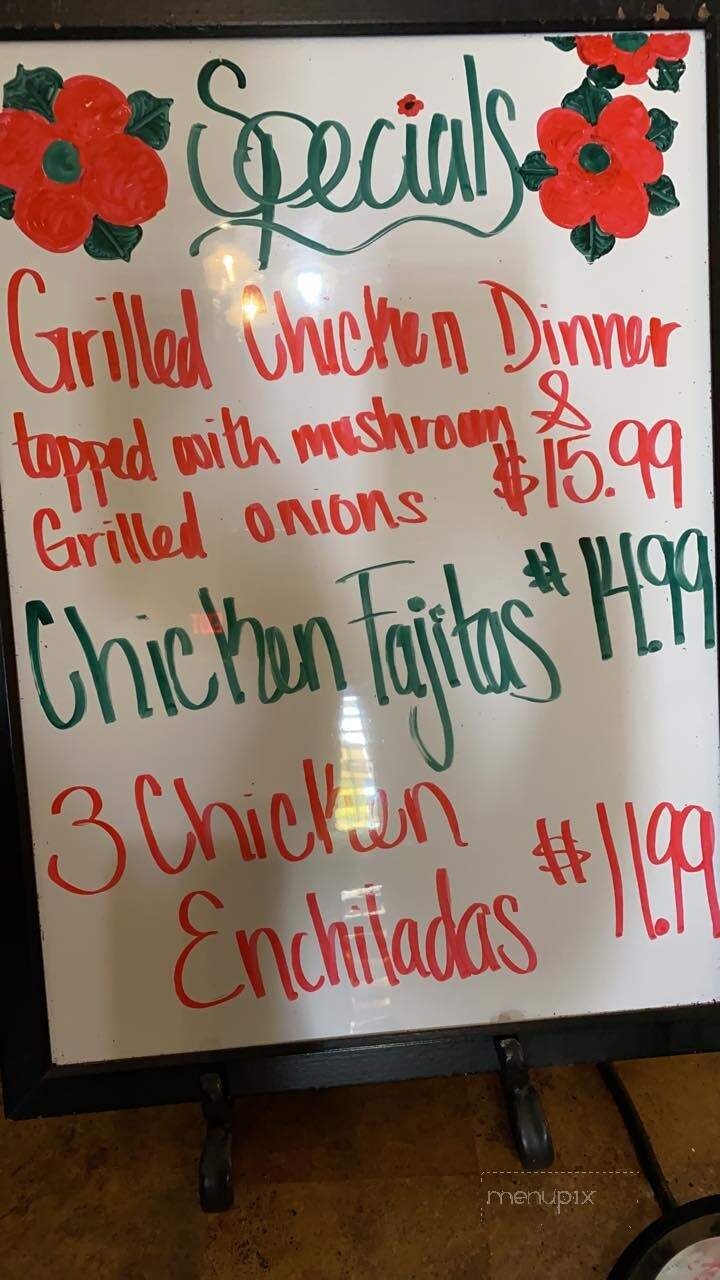 Specials
Grilled Chicken Dinner
topped with mushroom &
Grilled onions $15.99
Chicken Fajitas $14.99
3 Chicken
Enchiladas $11.99
menupix